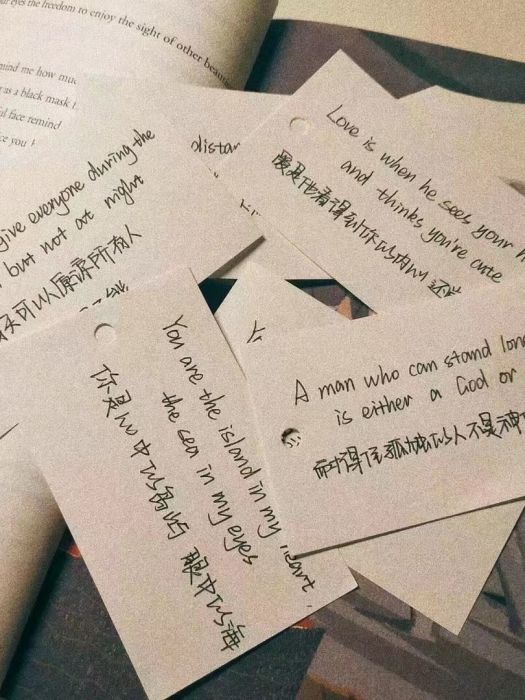 your eyes the freedom to enjoy the sight of other beau
mind me how muc
as a black mask
ul face remind
ce you
give everyone during the
but not at night
可以原谅所有人
distan
Love is when he sees your
and thinks you're cute
爱是他看得到你的内心 还觉
A man who can stand lone
is either a God or
耐得住孤独的人不是神
You are the island in my heart,
the sea in my eyes
你是心中的岛屿 眼中的海